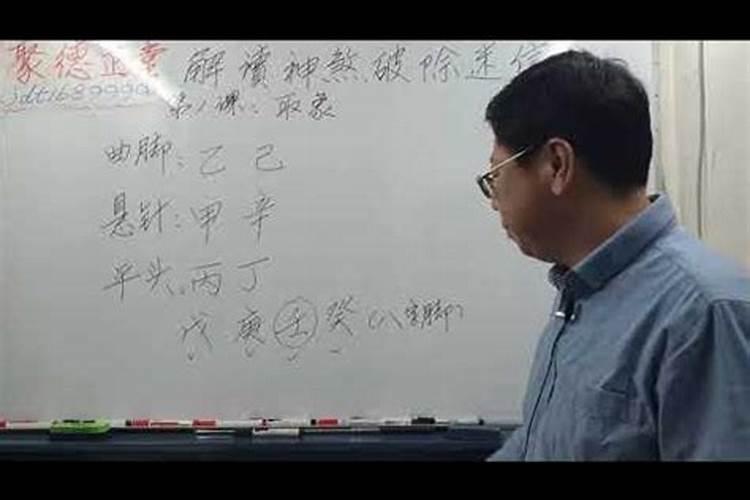 聚德正業 解读神煞破除迷信
jdt1689999
第1课：取象
曲脚：乙己
悬针：甲辛
平头：丙丁
戊庚壬癸（八字脚）